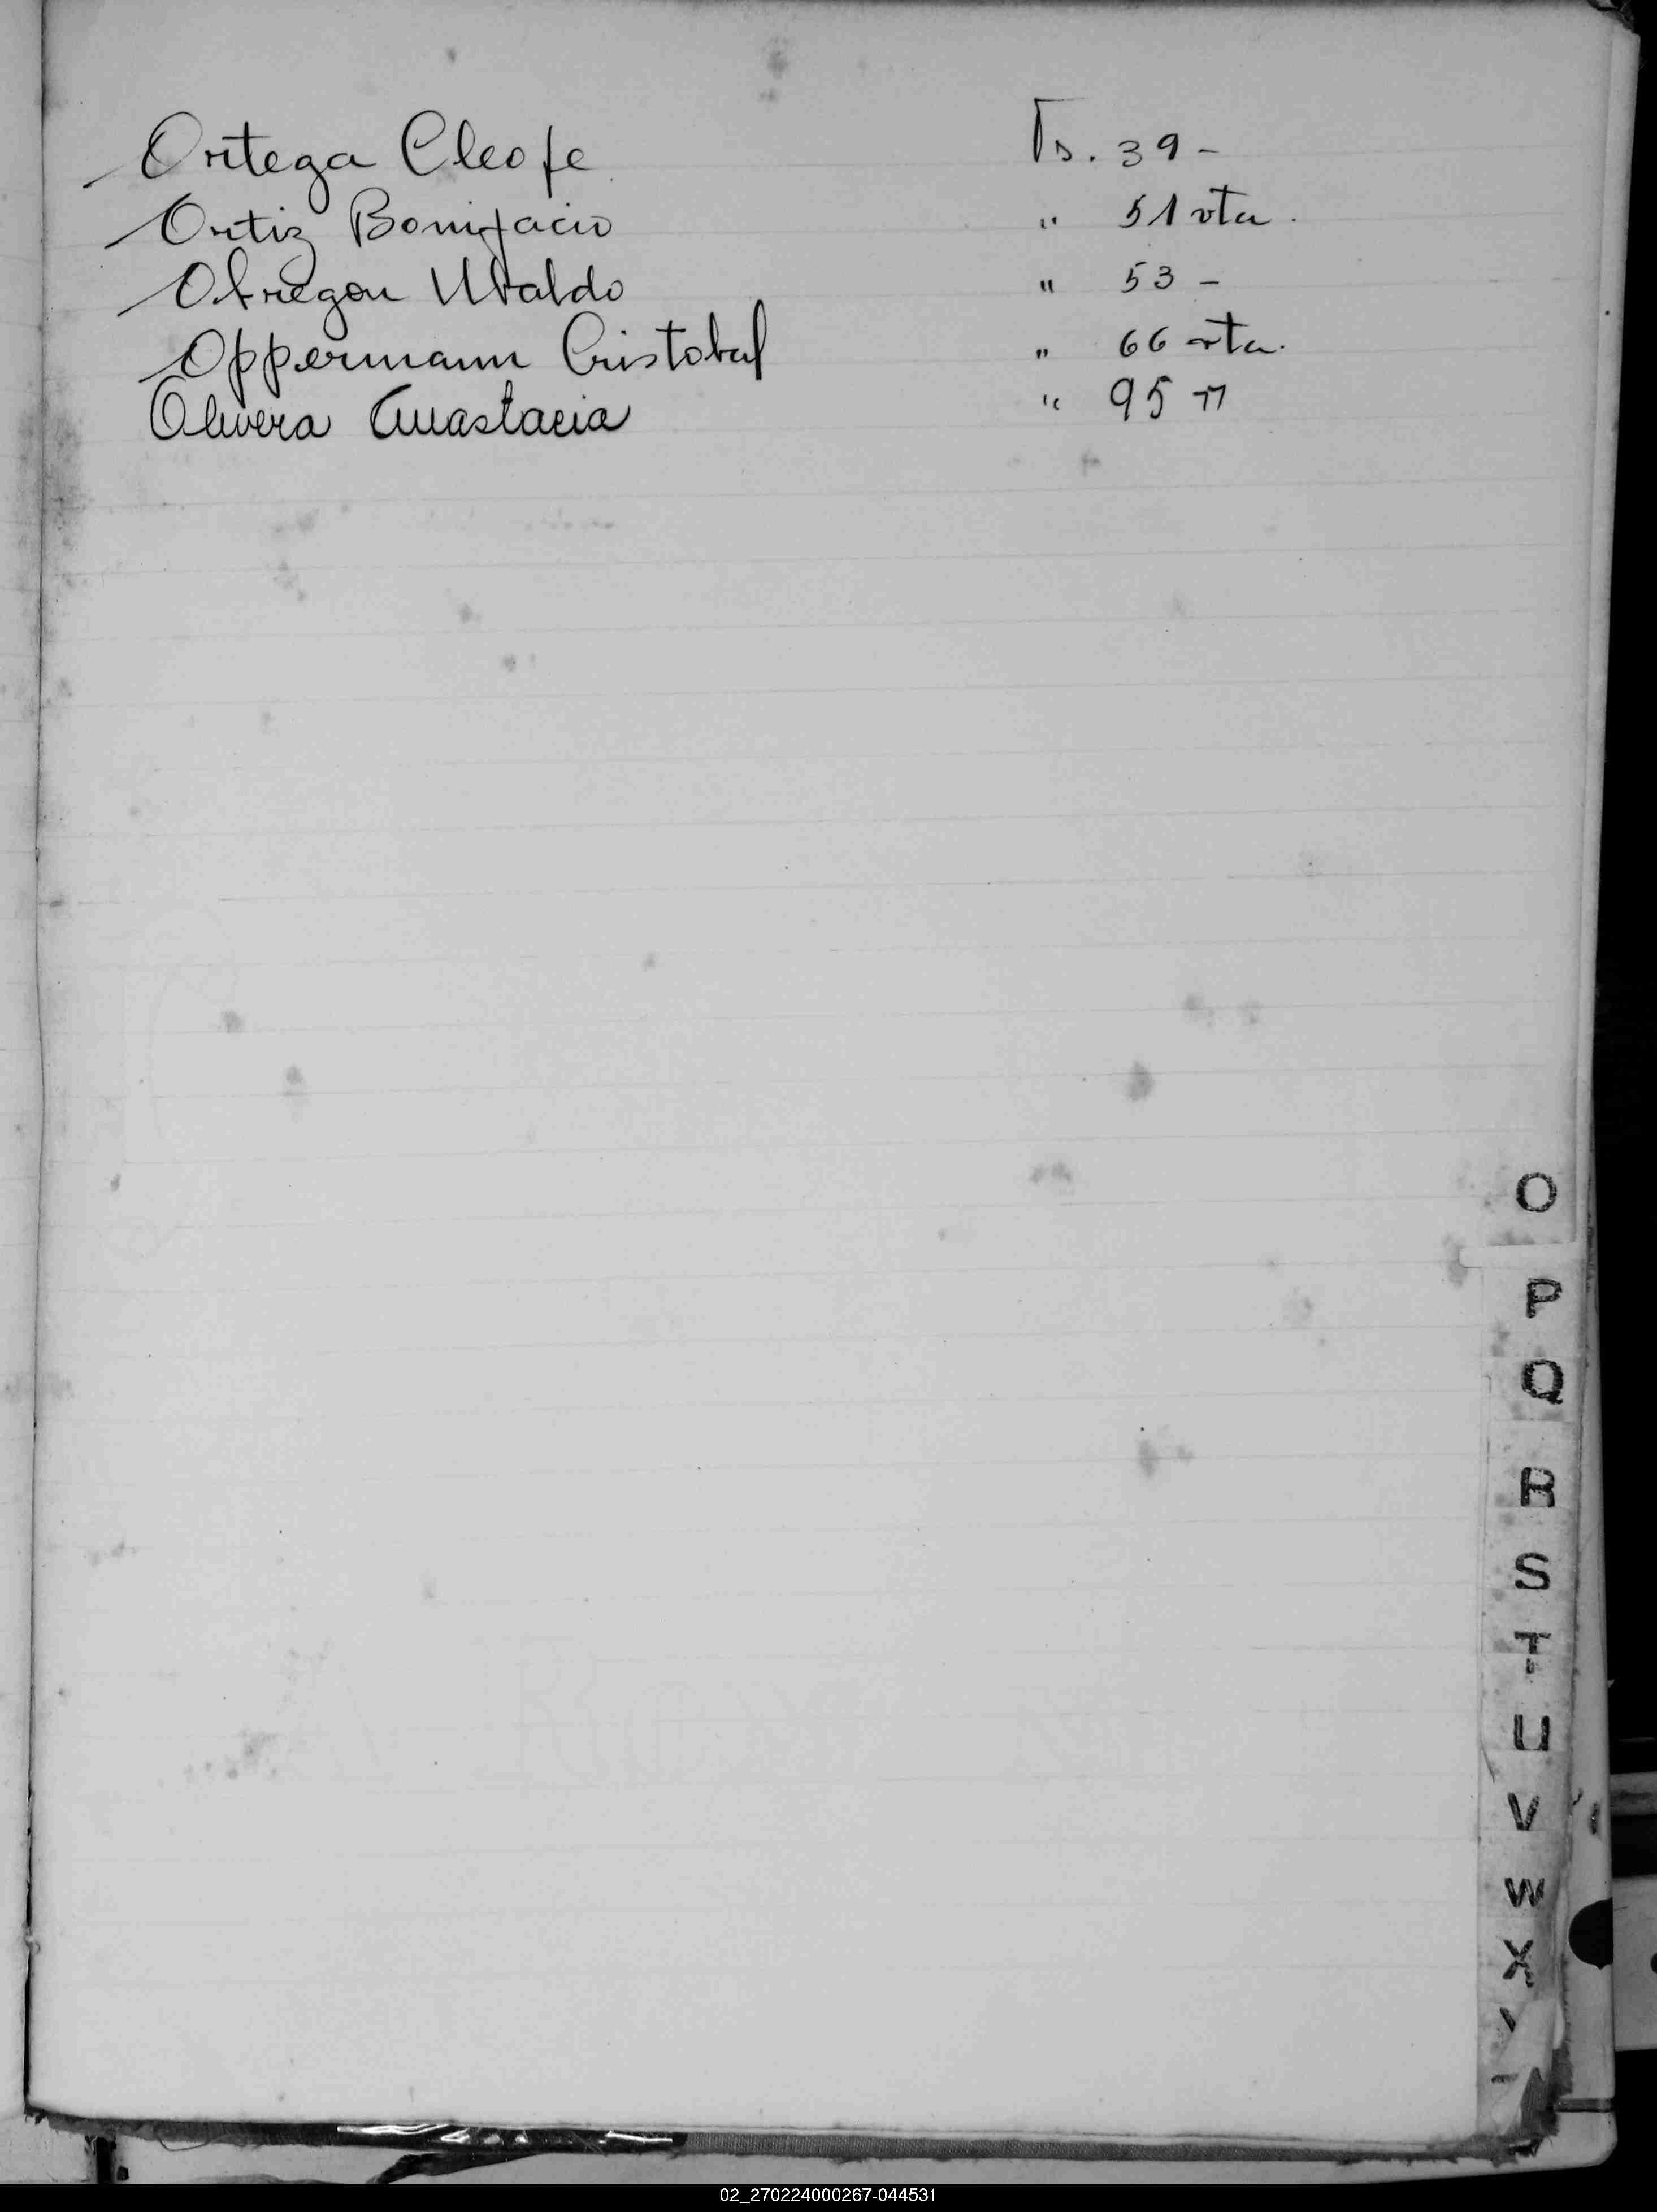 Ortega Cleofe Fs. 39 -
Ortiz Bonifacio " 51 vta.
Obregon Ubaldo " 53 -
Oppermann Cristobal " 66 vta.
Olivera Anastacia " 95
O
P
Q
R
S
T
U
V
W
X
02_270224000267-044531